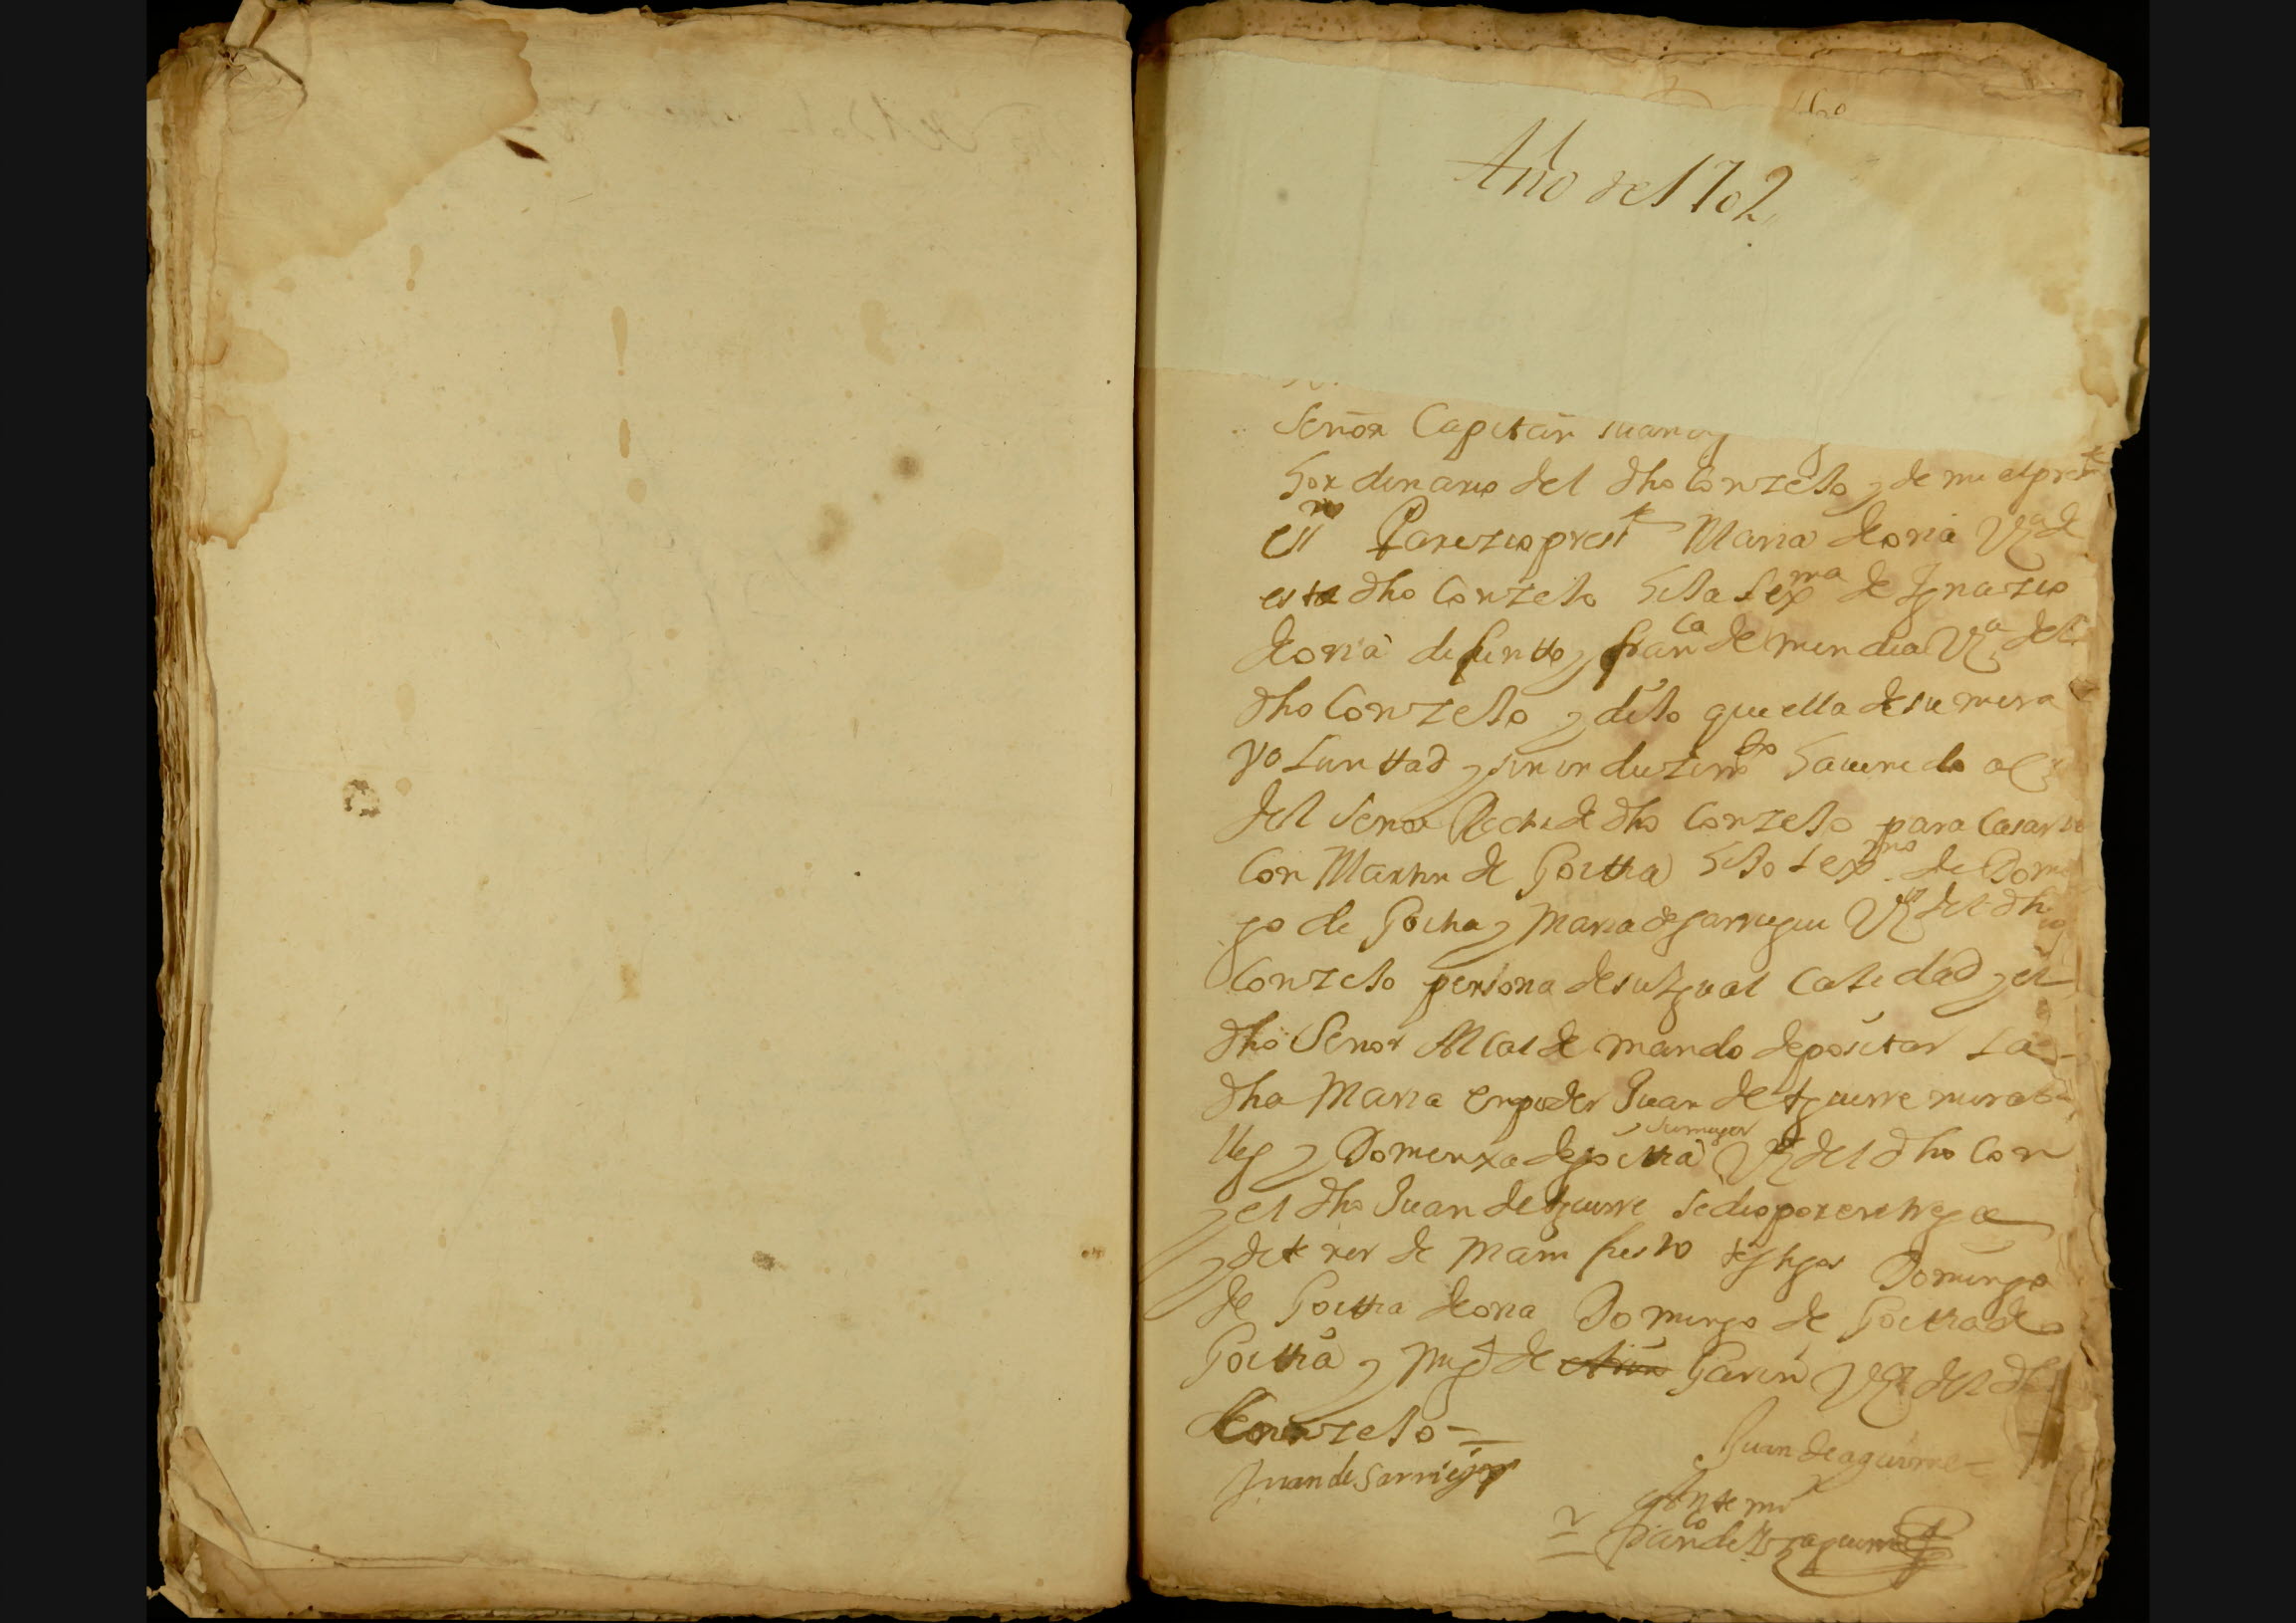 Año de 1702
Señor Capitan Juan
hordinario del dho Conzejo y de mi el preste
essno Parezio preste Maria de oria Vza de
este dho Conzejo hija lexma de Ygnazio
de oria difuntto y franca de mendia Vza del
dho Conzejo y dijo que ella de su mera
voluntad y sin induzimto havenido a
del Señor Alcde de dho Conzejo para casarse
Con Martin de Goittia hijo lexmo de Domin
go de Goitia y Maria de sarriegui Vzs del dho
Conzejo persona de su Ygual Calidad y el
dho Señor Alcalde mando depositar la
dha Maria en poder Juan de Aguirre
y Domenxa de goittia su muger Vzs del dho Con
y el dho Juan de Aguirre se dio por entrega
y de tener de manifiesto testigos Domingo
de Goittia de oria Domingo de Goittia de
Goittia y Migl de Garin Vzs del dho
Conzejo =
Juan de aguirre
Juan de Sarriegui
Ante mi
Franco de Yzaguirre